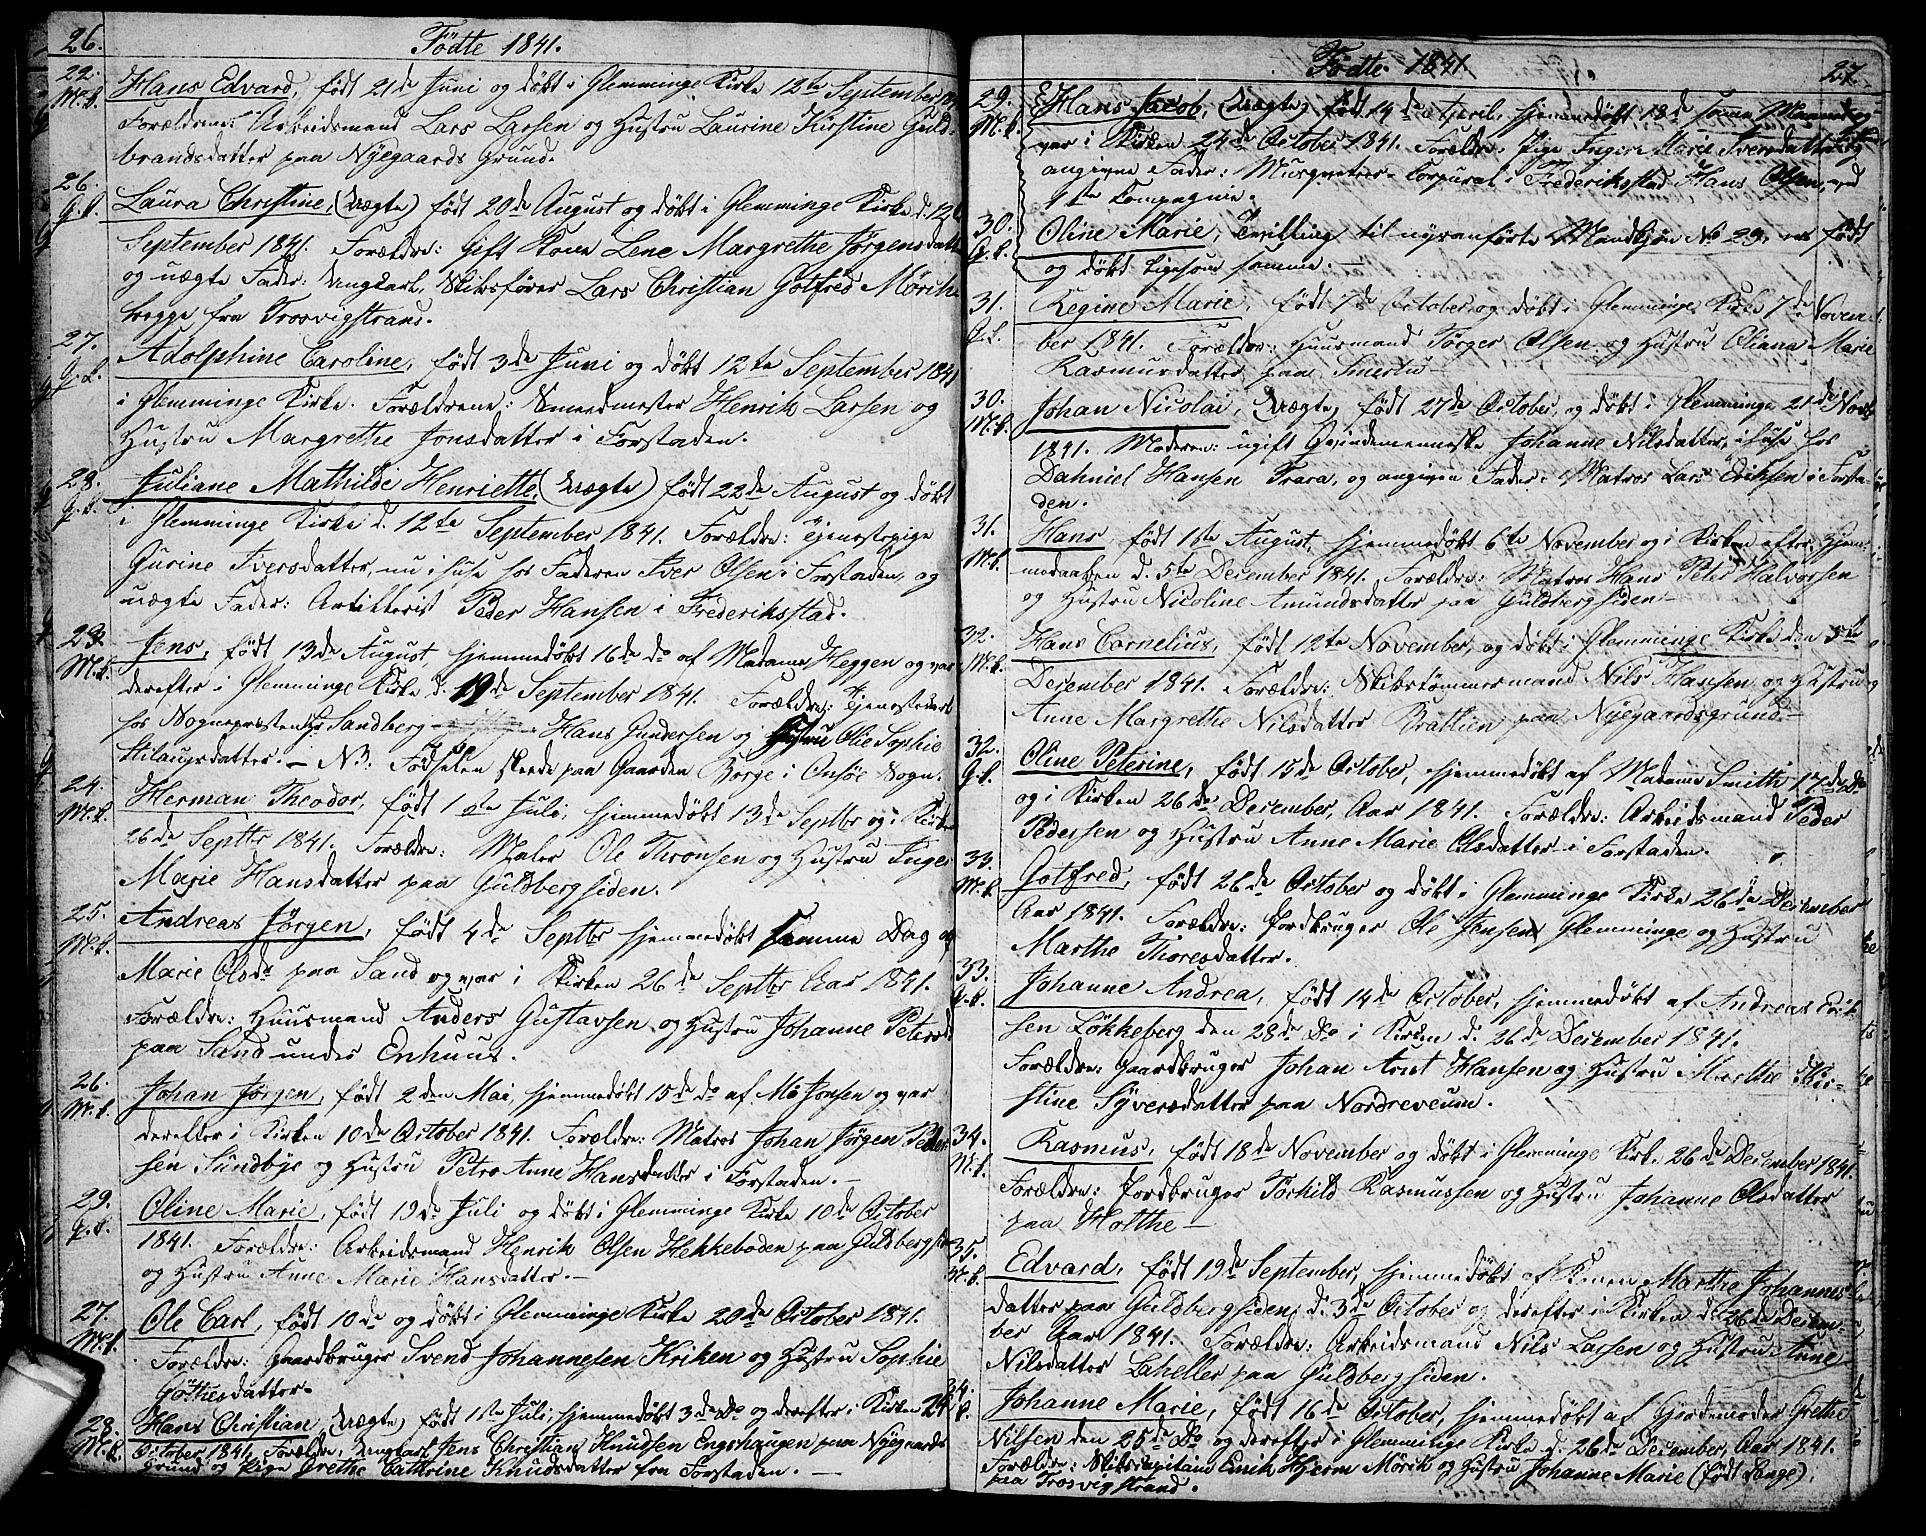 26.
Födte 1841.
22. Hans Edvard, født 21de Juni og døbt i Glemminge Kirke 12te September 1841
M.k. Forældrene: Arbeidsmand Lars Larsen og Hustru Laurine Kirstine Guld-
brandsdatter paa Nyegaards Grund.
26. Laura Christine, (Uægte) født 20de August og døbt i Glemminge Kirke d. 12te
Q.k. September 1841. Forældre: Gift Kone Lene Margrethe Jørgensdatter
og uægte Fader: Ungkarl, Skibsfører Lars Christian Gotfred Mørik
begge fra Trosvigstrand.
27. Adolphine Caroline, født 3de Juni og døbt 12te September 1841
Q.k. i Glemminge Kirke. Forældrene: Smeedmester Henrik Larsen og
Hustru Margrethe Jonsdatter i Forstaden.
28. Juliane Mathilde Henriette, (Uægte) født 22de August og døbt
Q.k. i Glemminge Kirke d. 12te September 1841. Forældre: Tjenestepige
Gurine Iversdatter, nu i huse hos Faderen Iver Olsen i Forstaden, og
uægte Fader: Artillerist Peder Hansen i Frederiksstad.
23. Jens, født 13de August, hjemmedøbt 16de do af Madame Heggen og var
M.k. derefter i Glemminge Kirke d. 19de September 1841. Forældre: Tjenestekarl
hos Sognepræsten Hr Sandberg Hans Gundersen og Hustru Olie Sophie
Stilaugsdatter. — NB: Fødselen skeede paa Gaarden Borge i Onsøe Sogn.
24. Herman Theodor, født 1ste Juli, hjemmedøbt 13de Septbr og i Kirken
M.k. 26de Septbr 1841. Forældre: Maler Ole Thronsen og Hustru Inger
Marie Hansdatter paa Guldbergsiden.
25. Andreas Jørgen, født 4de Septbr hjemmedøbt samme Dag af
M.k. Marie Olsdr paa Sand og var i Kirken 26de Septbr Aar 1841.
Forældre: Huusmand Anders Gustavsen og Hustru Johanne Petersd
paa Sand under Enhuus.
26. Johan Jörgen, født 2den Mai, hjemmedøbt 15de do af Md Jonsen og var
M.k. derefter i Kirken 10de October 1841. Forældre: Matros Johan Jørgen Peder-
sen Sundbye og Hustru Petro Anne Hansdatter i Forstaden. —
29. Oline Marie, født 19de Juli og døbt i Glemminge Kirke 10de October
Q.k. 1841. Forældre: Arbeidsmand Henrik Olsen Hekkeboden paa Guldbergsiden
og Hustru Anne Marie Hansdatter. —
27. Ole Carl, født 10de og døbt i Glemminge Kirke 20de October 1841.
M.k. Forældre: Gaardbruger Svend Johannesen Kriken og Hustru Sophie
Göthesdatter.
28. Hans Christian, (Uægte) født 1ste Juli, hjemmedøbt 3de do og derefter i Kirken 24de
M.k. October 1841. Forældre: Ungkarl Jens Christian Knudsen Engshaugen paa Nyegaards
Grund og Pige Grethe Cathrine Knudsdatter fra Forstaden. —
Födte 1841
27.
29. Hans Jacob, (Uægte) født 14de April, hjemmedøbt 18de samme Maaned og
M.k. var i Kirken 24de October 1841. Forældre: Pige Inger Marie Iversdatter og
angivne Fader: Musqueteer-Corporal i Frederiksstad Hans Olsen, ved
1ste Kompagnie.
30. Oline Marie, Tvilling til nysanførte Mandkjøn No 29, er født
Q.k. og døbt ligesom samme. —
31. Regine Marie, født 7de October, og døbt i Glemminge Kirke 7de Novem-
Q.k. ber 1841. Forældre: Huusmand Törger Olsen og Hustru Oliana Marie
Rasmusdatter paa
30. Johan Nicolai, (Uægte) født 27de October, og døbt i Glemminge 21de Novbr
M.k. 1841. Moderen: ugift Qvindemenneske Johanne Nilsdatter, i huse hos
Dahniel Hansen Trara, og angiven Fader: Matros Lars Eriksen i Forsta-
den.
31. Hans, født 1ste August, hjemmedøbt 6te November og i Kirken efter Hjem-
M.k. medaaben d. 5te December 1841. Forældre: Matros Hans Peter Halvorsen
og Hustru Nicoline Amundsdatter paa Guldbergsiden —
32. Hans Cornelius, født 12te November, og døbt i Glemminge Kirke den 5te
M.k. December 1841. Forældre: Skibstømmermand Nils Hansen og Hustru
Anne Margrethe Nilsdatter Bratlien paa Nyegaardsgrund. —
32. Oline Peterine, født 15de October, hjemmedøbt af Madame Smith 17de do
Q.k. og i Kirken 26de December, Aar 1841. Forældre: Arbeidsmand Peder
Pedersen og Hustru Anne Marie Olsdatter i Forstaden.
33. Gotfred, født 26de October og døbt i Glemminge Kirke 26de December
M.k. Aar 1841. Forældre: Jordbruger Ole Jensen Glemminge og Hustru
Marthe Thoresdatter.
33. Johanne Andrea, født 14de October, hjemmedøbt af Andreas Erik-
Q.k. sen Løkkeberg den 28de do i Kirken d. 26de December 1841.
Forældre: Gaardbruger Johan Arnt Hansen og Hustru Marthe Kir-
stine Syversdatter paa Nordreveum.
34. Rasmus, født 18de November og døbt i Glemminge Kirke 26de December 1841.
M.k. Forældre: Jordbruger Torkild Rasmussen og Hustru Johanne Olsdatter
paa Holthe —
35. Edvard, født 19de September, hjemmedøbt af Konen Marthe Johannes-
M.k. datter paa Guldbergsiden, d. 3de October og derefter i Kirken d. 26de Decem-
ber Aar 1841. Forældre: Arbeidsmand Nils Larsen og Hustru Anne
Nilsdatter Laheller paa Guldbergsiden.
34. Johanne Marie, født 16de October, hjemmedøbt af Gjordmoder Grethe
Q.k. Nilsen den 25de do og derefter i Glemminge Kirke d. 26de December, Aar 1841.
Forældre: Skibscapitain Erik Hjerm Mörik og Hustru Johanne Marie (født Lange).
paa Trosvigstrand.